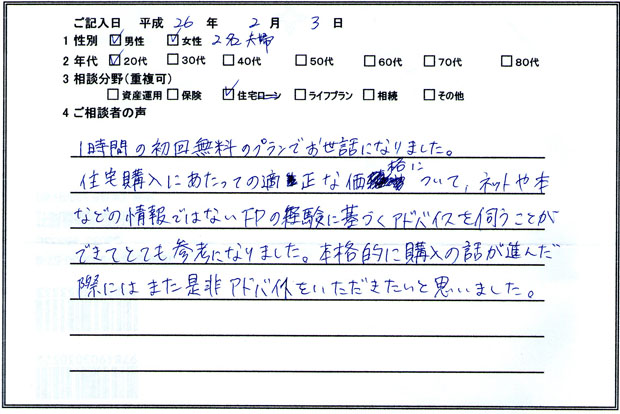 ご記入日 平成 26 年 2 月 3 日
1 性別 ☑男性 ☑女性 2名夫婦
2 年代 ☑20代 □30代 □40代 □50代 □60代 □70代 □80代
3 相談分野(重複可)
□資産運用 □保険 ☑住宅ローン □ライフプラン □相続 □その他
4 ご相談者の声
1時間の初回無料のプランでお世話になりました。
住宅購入にあたっての適正な価格について、ネットや本
などの情報ではないFPの経験に基づくアドバイスを伺うことが
できてとても参考になりました。本格的に購入の話が進んだ
際にはまた是非アドバイスをいただきたいと思いました。